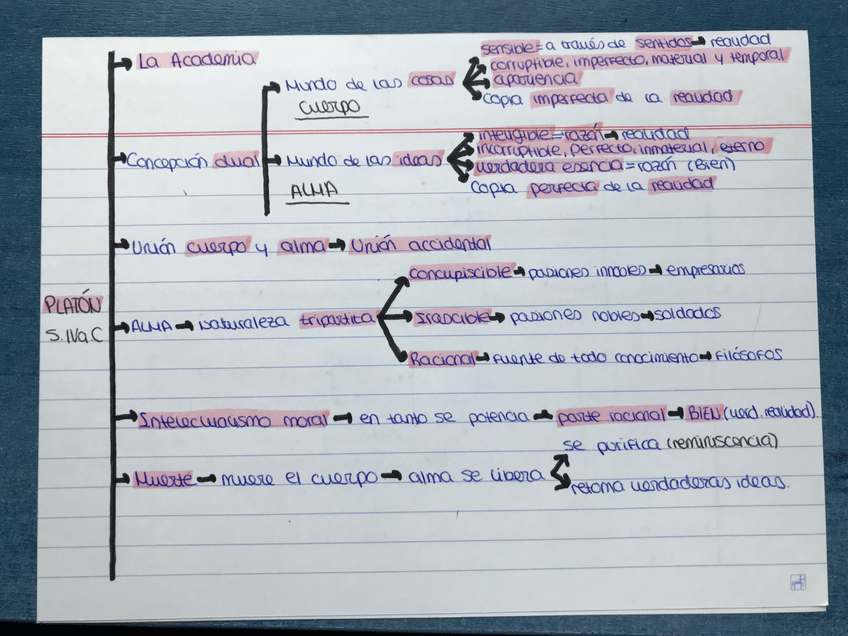 La Academia
sensible = a través de sentidos → realidad
corruptible, imperfecto, material y temporal
Mundo de las cosas
apariencia
CUERPO
copia imperfecta de la realidad
Concepción dual
inteligible = razón → realidad
incorruptible, perfecto, inmaterial, eterno
Mundo de las ideas
verdadera esencia = razón (Bien)
ALMA
Copia perfecta de la realidad
Unión cuerpo y alma → Unión accidental
PLATÓN
S. IV a.C
ALMA → naturaleza tripartita
Concupiscible → pasiones innobles → empresarios
Irascible → pasiones nobles → soldados
Racional → fuente de todo conocimiento → filósofos
Intelectualismo moral → en tanto se potencia → parte racional → BIEN (verd. realidad).
Muerte → muere el cuerpo → alma se libera
se purifica (reminiscencia)
retoma verdaderas ideas.